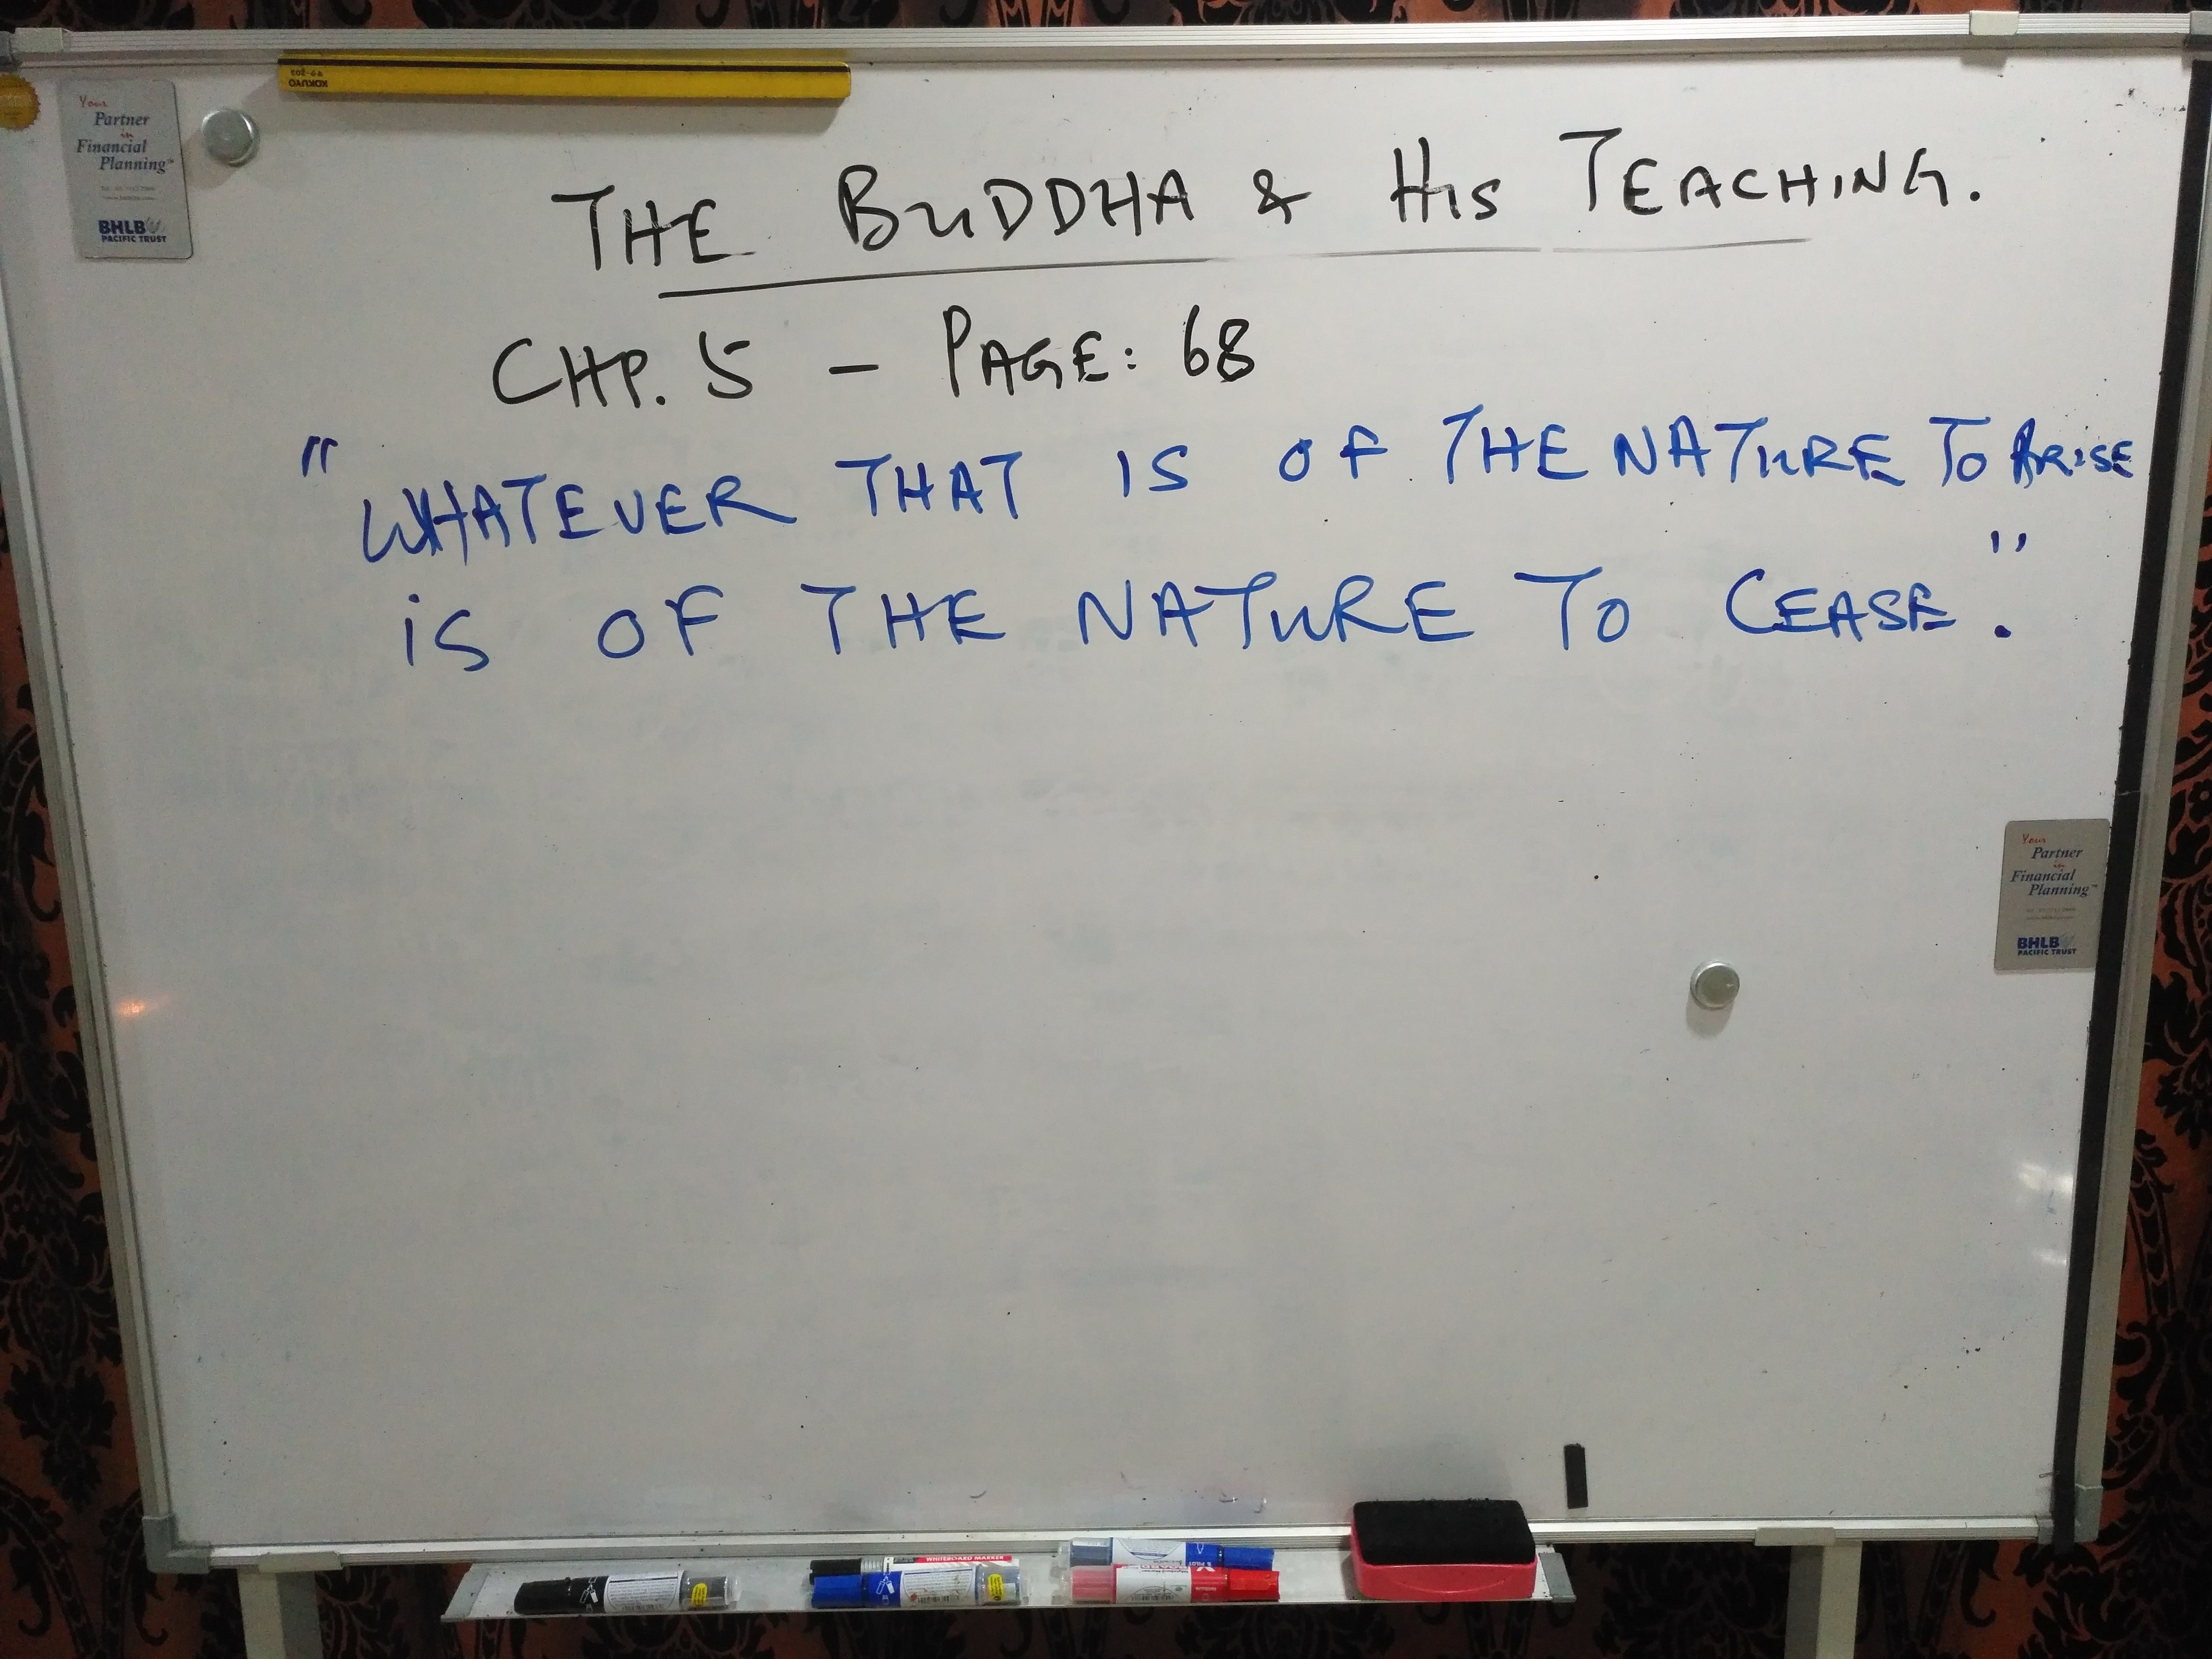 KOKUYO
Your
Partner
in
Financial
Planning™
BHLB
PACIFIC TRUST
THE BUDDHA & His TEACHING.
CHP. 5 - PAGE: 68
"WHATEVER THAT IS OF THE NATURE TO ARISE
is OF THE NATURE TO CEASE."
Your
Partner
in
Financial
Planning™
BHLB
PACIFIC TRUST
WHITEBOARD MARKER